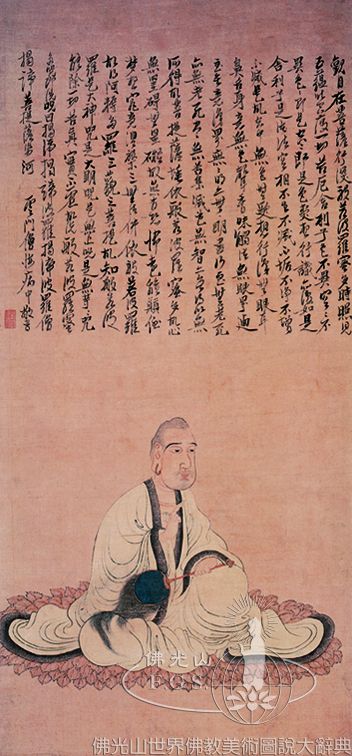 觀自在菩薩行深般若波羅蜜多時照見
五蘊皆空度一切苦厄舍利子色不異空空不
異色色即是空空即是色受想行識亦復如是
舍利子是諸法空相不生不滅不垢不淨不增
不減是故空中無色無受想行識無眼耳
鼻舌身意無色聲香味觸法無眼界乃
至無意識界無無明亦無無明盡乃至無老死
亦無老死盡無苦集滅道無智亦無得以無
所得故菩提薩埵依般若波羅蜜多故心
無罣礙無罣礙故無有恐怖遠離顛倒
夢想究竟涅槃三世諸佛依般若波羅蜜多
故得阿耨多羅三藐三菩提故知般若波
羅蜜多是大神咒是大明咒是無上咒是無等等咒
能除一切苦真實不虛故說般若波羅蜜
多咒即說咒曰揭諦揭諦波羅揭諦波羅僧
揭諦菩提薩婆訶 雲門僧 病中敬書
佛光山
F.G.S.
佛光山世界佛教美術圖說大辭典